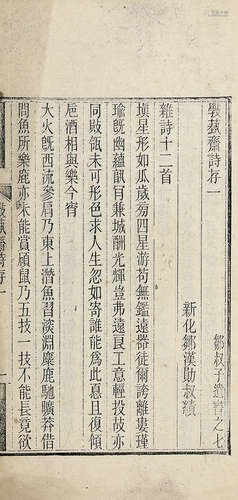 斅蓺齋詩存一
鄒叔子遺書之七
新化鄒漢勛叔績
雜詩十二首
塡星形如瓜歲旁四星游苟無鑑遠器徒爾誇離婁瑾
瑜旣幽蘊䀻肎兼城酬光輝豈弗遠良工意輕投故亦
同敗瓴未可形色求人生忽如寄誰能爲此憂且復傾
巵酒相與樂今宵
大火旣西流參肩乃東上潛魚習淡淵麋鹿馳曠莽借
問魚所樂鹿亦未能賞碩鼠乃五技一技不能長竟欲
斅蓺齋詩存一